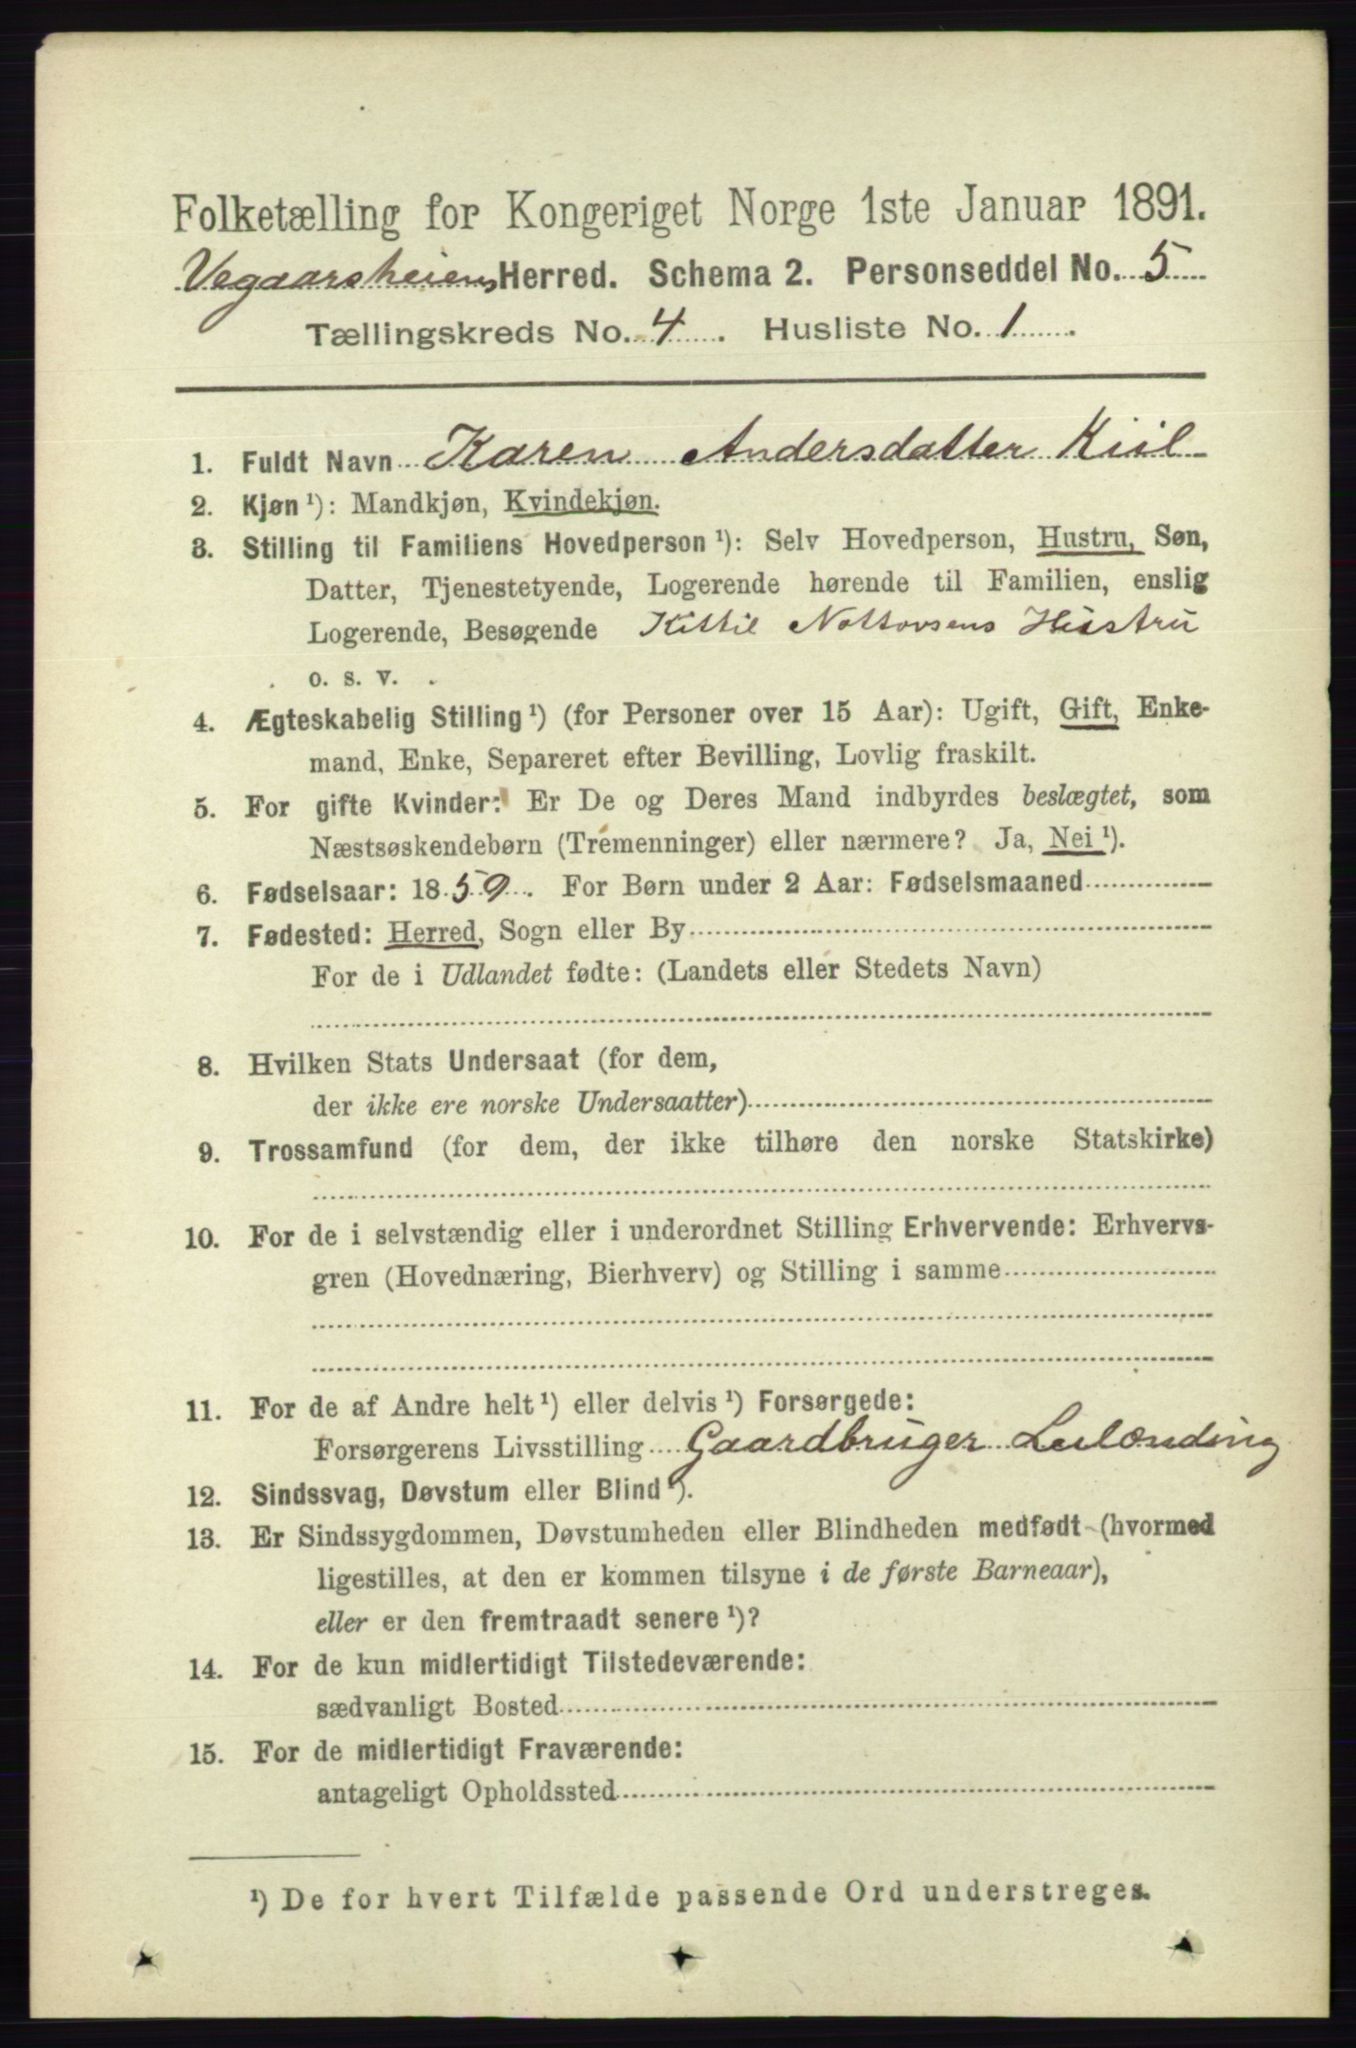 Folketælling for Kongeriget Norge 1ste Januar 1891.
Vegaarsheiens Herred. Schema 2. Personseddel No. 5
Tællingskreds No. 4. Husliste No. 1.
1. Fuldt Navn Karen Andersdatter Kiil
2. Kjøn ¹): Mandkjøn, Kvindekjøn.
3. Stilling til Familiens Hovedperson ¹): Selv Hovedperson, Hustru, Søn,
Datter, Tjenestetyende, Logerende hørende til Familien, enslig
Logerende, Besøgende Kittil Hustru
o. s. v.
4. Ægteskabelig Stilling ¹) (for Personer over 15 Aar): Ugift, Gift, Enke-
mand, Enke, Separeret efter Bevilling, Lovlig fraskilt.
5. For gifte Kvinder: Er De og Deres Mand indbyrdes beslægtet, som
Næstsøskendebørn (Tremenninger) eller nærmere? Ja, Nei ¹).
6. Fødselsaar: 1859. For Børn under 2 Aar: Fødselsmaaned
7. Fødested: Herred, Sogn eller By
For de i Udlandet fødte: (Landets eller Stedets Navn)
8. Hvilken Stats Undersaat (for dem,
der ikke ere norske Undersaatter)
9. Trossamfund (for dem, der ikke tilhøre den norske Statskirke)
10. For de i selvstændig eller i underordnet Stilling Erhvervende: Erhvervs-
gren (Hovednæring, Bierhverv) og Stilling i samme
11. For de af Andre helt ¹) eller delvis ¹) Forsørgede:
Forsørgerens Livsstilling Gaardbruger Leilænding
12. Sindssvag, Døvstum eller Blind ¹).
13. Er Sindssygdommen, Døvstumheden eller Blindheden medfødt (hvormed
ligestilles, at den er kommen tilsyne i de første Barneaar),
eller er den fremtraadt senere ¹)?
14. For de kun midlertidigt Tilstedeværende:
sædvanligt Bosted
15. For de midlertidigt Fraværende:
antageligt Opholdssted
¹) De for hvert Tilfælde passende Ord understreges.